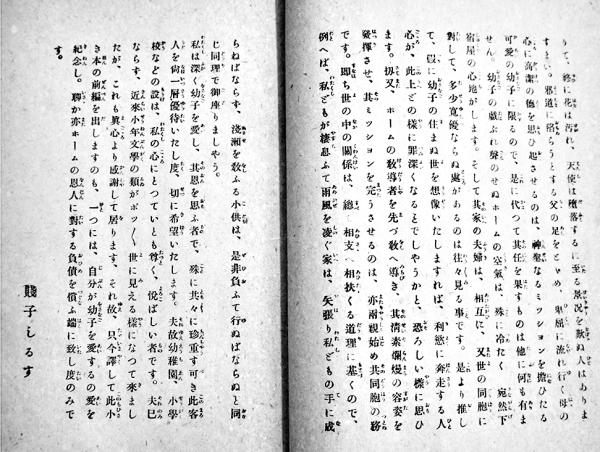 りて、終に花は汚れ、天使は墮落するに至る景況を歎ぬ人はありま
すます。邪道に陷らうとする父の足をとゞめ、卑屈に流れ行く母の
心に高潔の徳を思ひ起させるのは、神聖なるミッションを擔ひたる
可愛の幼子に限るので、是に代つて其任を果すものは他に何も有ま
せん。幼子の戯ぶれ聲のせぬホームの空氣は、殊に冷たく、宛然下
宿屋の心地がします。そして其家の夫婦は、相互に、又世の同胞に
對して、多少寛優ならぬ處があるのは往々見る事です。是より推し
て、假に幼子の住まぬ世を想像いたしますれば、利慾に奔走する人
心が、此上どの樣に罪深くなるとでしやうかと、恐ろしい樣に思ひ
ます。扨又、ホームの敎導者を先づ敎へ導き、其清素爛熳の容姿を
發揮させ、其ミッションを完うさせるのは、亦兩親始め共同胞の務
です。即ち世の中の關係は、總て相支へ相扶くる道理に基くので、
例へば、私どもが棲息ふて雨風を凌ぐ家は、矢張り私どもの手に成
らねばならず、淺瀬を敎ふる小供は、是非負ふて行ねばならぬと同
じ同理で御座りましやう。
私は深く幼子を愛し、其恩を思ふ者で、殊に共々に珍重す可き此客
人を尙一層優待いたし度、切に希望いたします。夫故幼稚園、小學
校などの設は、私の心にとつていとも尊く、悅ばしい者です。夫已
ならず、近來小年文學の類がボツ〳〵世に見える樣になつて來まし
たが、これも眞心より感謝して居ります。それ故、只今譯して此小
さき本の前編を出しますのも、一つには、自分が幼子を愛するの愛を
紀念し、聊か亦ホームの恩人に對する負債を償ふ端に致し度いのみで
す。
賤子しるす